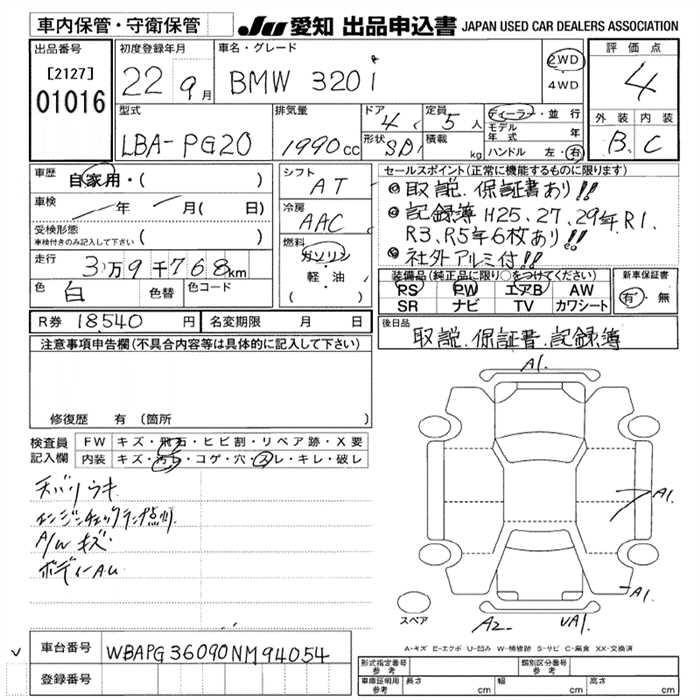 車内保管・守衛保管
JU 愛知 出品申込書 JAPAN USED CAR DEALERS ASSOCIATION
出品番号
[2127]
01016
初度登録年月
22 9月
車名・グレード
BMW 320i
2WD
4WD
評価点
4
外装 内装
B C
型式
LBA-PG20
排気量
1990cc
ドア
4
形状
SD
定員
5人
積載
kg
ディーラー・並行
モデル年式 年
ハンドル 左・右
車歴
自家用・( )
車検
年 月( 日)
受検形態
車検付きのみ記入して下さい
( )
走行
3万9千768km
色
白
色替
色コード
シフト
AT
冷房
AAC
燃料
ガソリン
軽・油
( )
セールスポイント(正常に機能するものに限ります)
◎取説.保証書あり!!
◎記録簿H25、27、29年R1.
R3、R5年6枚あり!!
◎社外アルミ付!!
装備品(純正品に限り○をつけてください)
PS PW エアB AW
SR ナビ TV カワシート
新車保証書
有・無
R券 18540円
名変期限 月 日
後日品
取説.保証書.記録簿
注意事項申告欄(不具合内容等は具体的に記入して下さい)
修復歴 有(箇所 )
検査員
記入欄
FW キズ・飛石・ヒビ割・リペア跡・X要
内装 キズ・汚れ・コゲ・穴・スレ・キレ・破レ
天バリウキ
エンジンチェックランプ点灯
A/Wキズ
ボディーAU
A1.
A1.
A1.
A2.
UA1.
スペア
A-キズ E-エクボ U-凹み W-補修跡 S-サビ C-腐食 XX-交換済
車台番号 WBAPG36090NM94054
登録番号
形式指定番号
参考
類別区分番号
参考
車庫証明用
参考
長さ cm 幅 cm 高さ cm